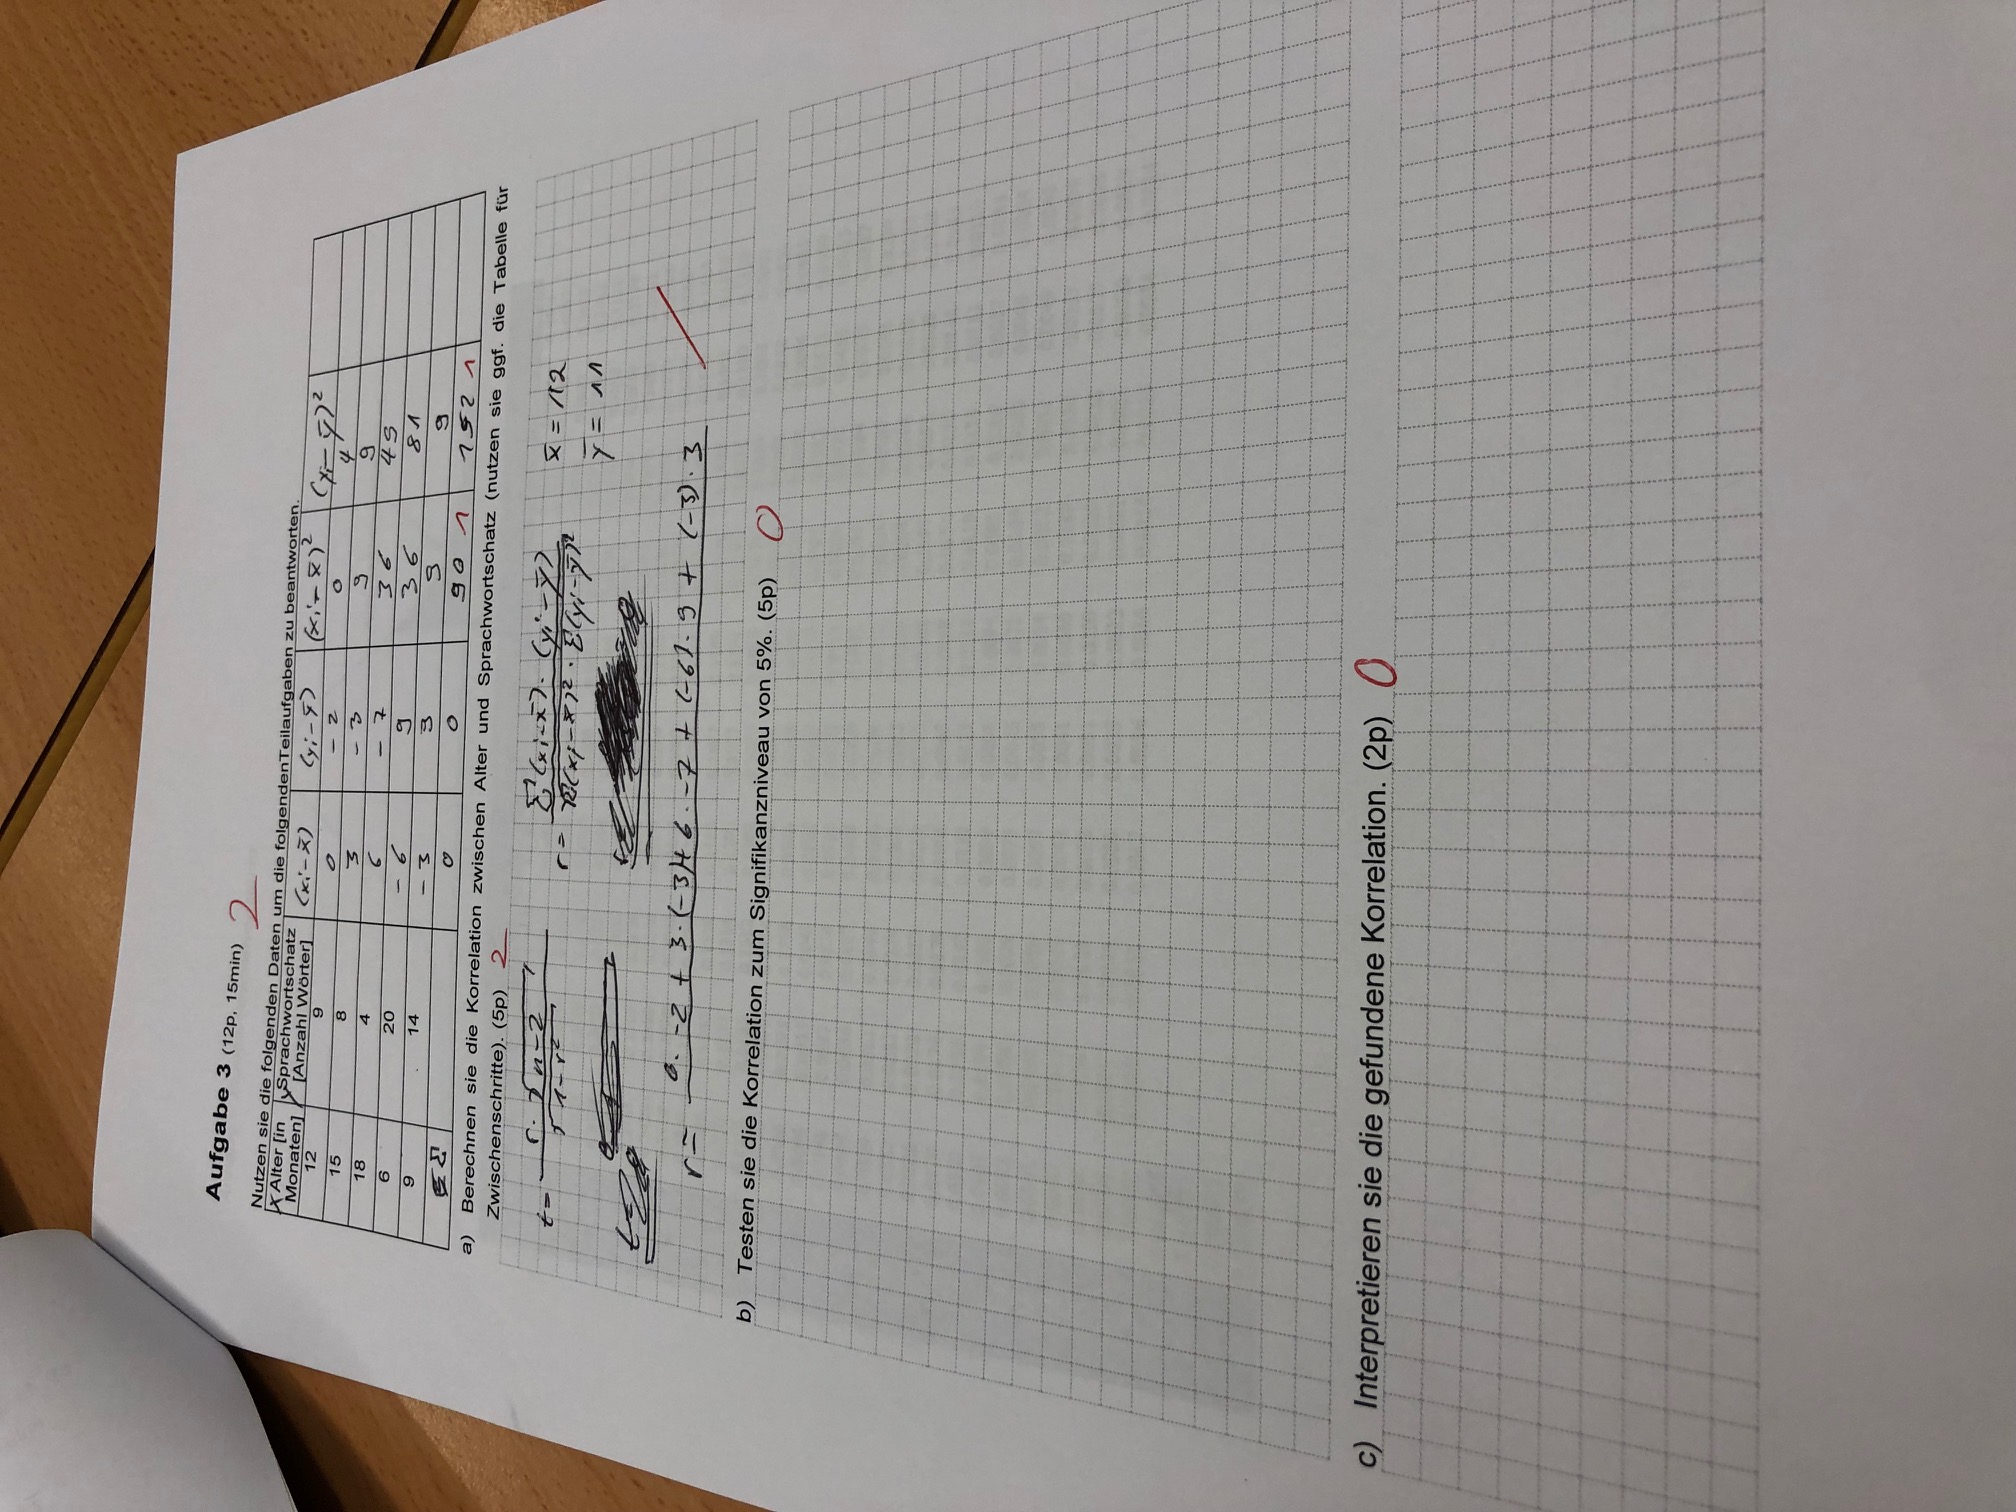 Aufgabe 3 (12p, 15min) 2
Nutzen sie die folgenden Daten um die folgendenTeilaufgaben zu beantworten.
x Alter [in Monaten] y Sprachwortschatz [Anzahl Wörter] (xi-x̄) (yi-ȳ) (xi-x̄)² (yi-ȳ)²
12 9 0 -2 0 4
15 8 3 -3 9 9
18 4 6 -7 36 49
6 20 -6 9 36 81
9 14 -3 3 9 9
Σ 0 0 90 1 152 1
a) Berechnen sie die Korrelation zwischen Alter und Sprachwortschatz (nutzen sie ggf. die Tabelle für
Zwischenschritte). (5p) 2
t= r·√n-2 / √1-r² r= Σ(xi-x̄)·(yi-ȳ) / √Σ(xi-x̄)²·Σ(yi-ȳ)² x̄ = 12
ȳ = 11
r= 0·-2 + 3·(-3)+6·-7 + (-6)·9 + (-3)·3
b) Testen sie die Korrelation zum Signifikanzniveau von 5%. (5p) 0
c) Interpretieren sie die gefundene Korrelation. (2p) 0